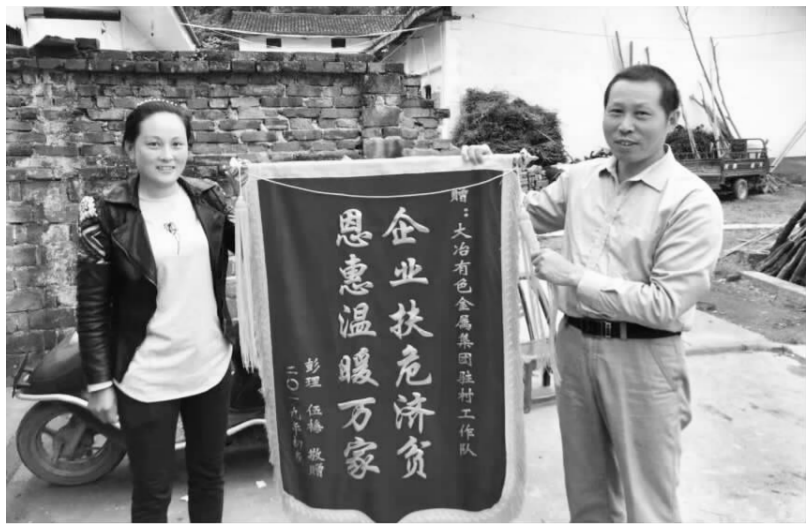 赠：大冶有色金属集团驻村工作队
企业扶危济贫
恩惠温暖万家
彭理 伍椿 敬赠
二〇一九年